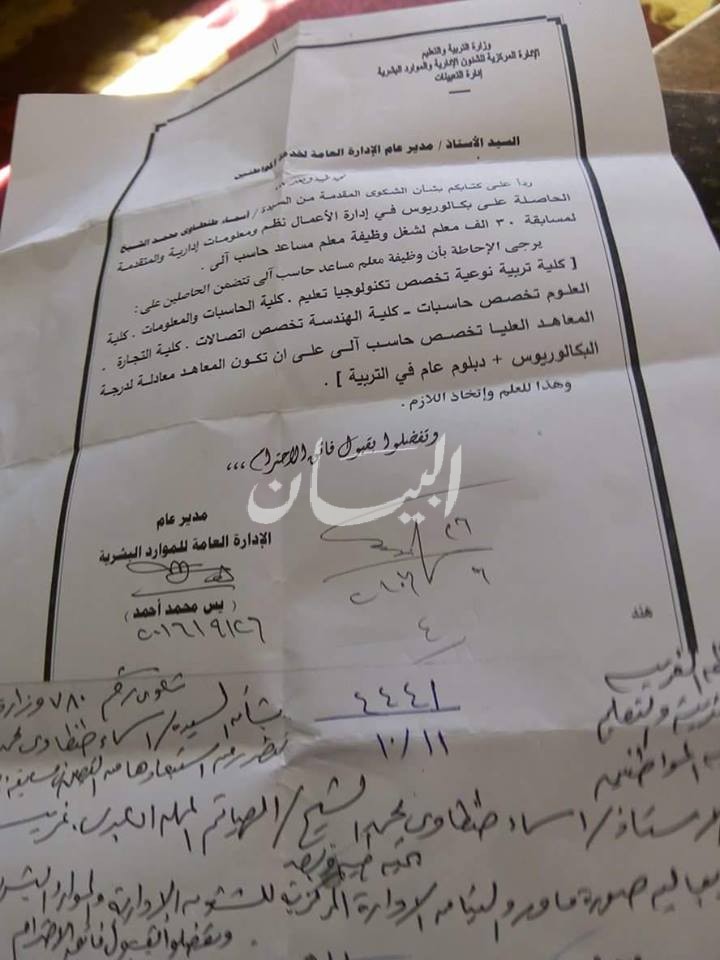 وزارة التربية والتعليم
الإدارة المركزية للشئون الإدارية والموارد البشرية
إدارة التعيينات
السيد الأستاذ / مدير عام الإدارة العامة لخدمة المواطنين
رداً على كتابكم بشأن الشكوى المقدمة من السيدة / أسماء طنطاوى محمد الشيخ
الحاصلة على بكالوريوس في إدارة الأعمال نظم ومعلومات إدارية والمتقدمة
لمسابقة ٣٠ الف معلم لشغل وظيفة معلم مساعد حاسب آلى .
يرجى الإحاطة بأن وظيفة معلم مساعد حاسب آلى تتضمن الحاصلين على :
[ كلية تربية نوعية تخصص تكنولوجيا تعليم . كلية الحاسبات والمعلومات . كلية
العلوم تخصص حاسبات – كلية الهندسة تخصص اتصالات . كلية التجارة .
المعاهد العليا تخصص حاسب آلى على ان تكون المعاهد معادلة لدرجة
البكالوريوس + دبلوم عام في التربية ] .
وهذا للعلم وإتخاذ اللازم .
وتفضلوا بقبول فائق الاحترام ،،،
البيان
مدير عام
الإدارة العامة للموارد البشرية
( يس محمد أحمد )
٢٠١٦/٩/٢٦
هند
٤٤٤١
١٠/١١
شكوى رقم ٧٨٠ وزارة
بشأن السيدة / أسماء طنطاوى
والتعليم
المواطنين
أسماء طنطاوى محمد الشيخ /
صورة ما ورد إلينا من الإدارة المركزية للشئون الإدارية والموارد
وتفضلوا بقبول فائق الاحترام